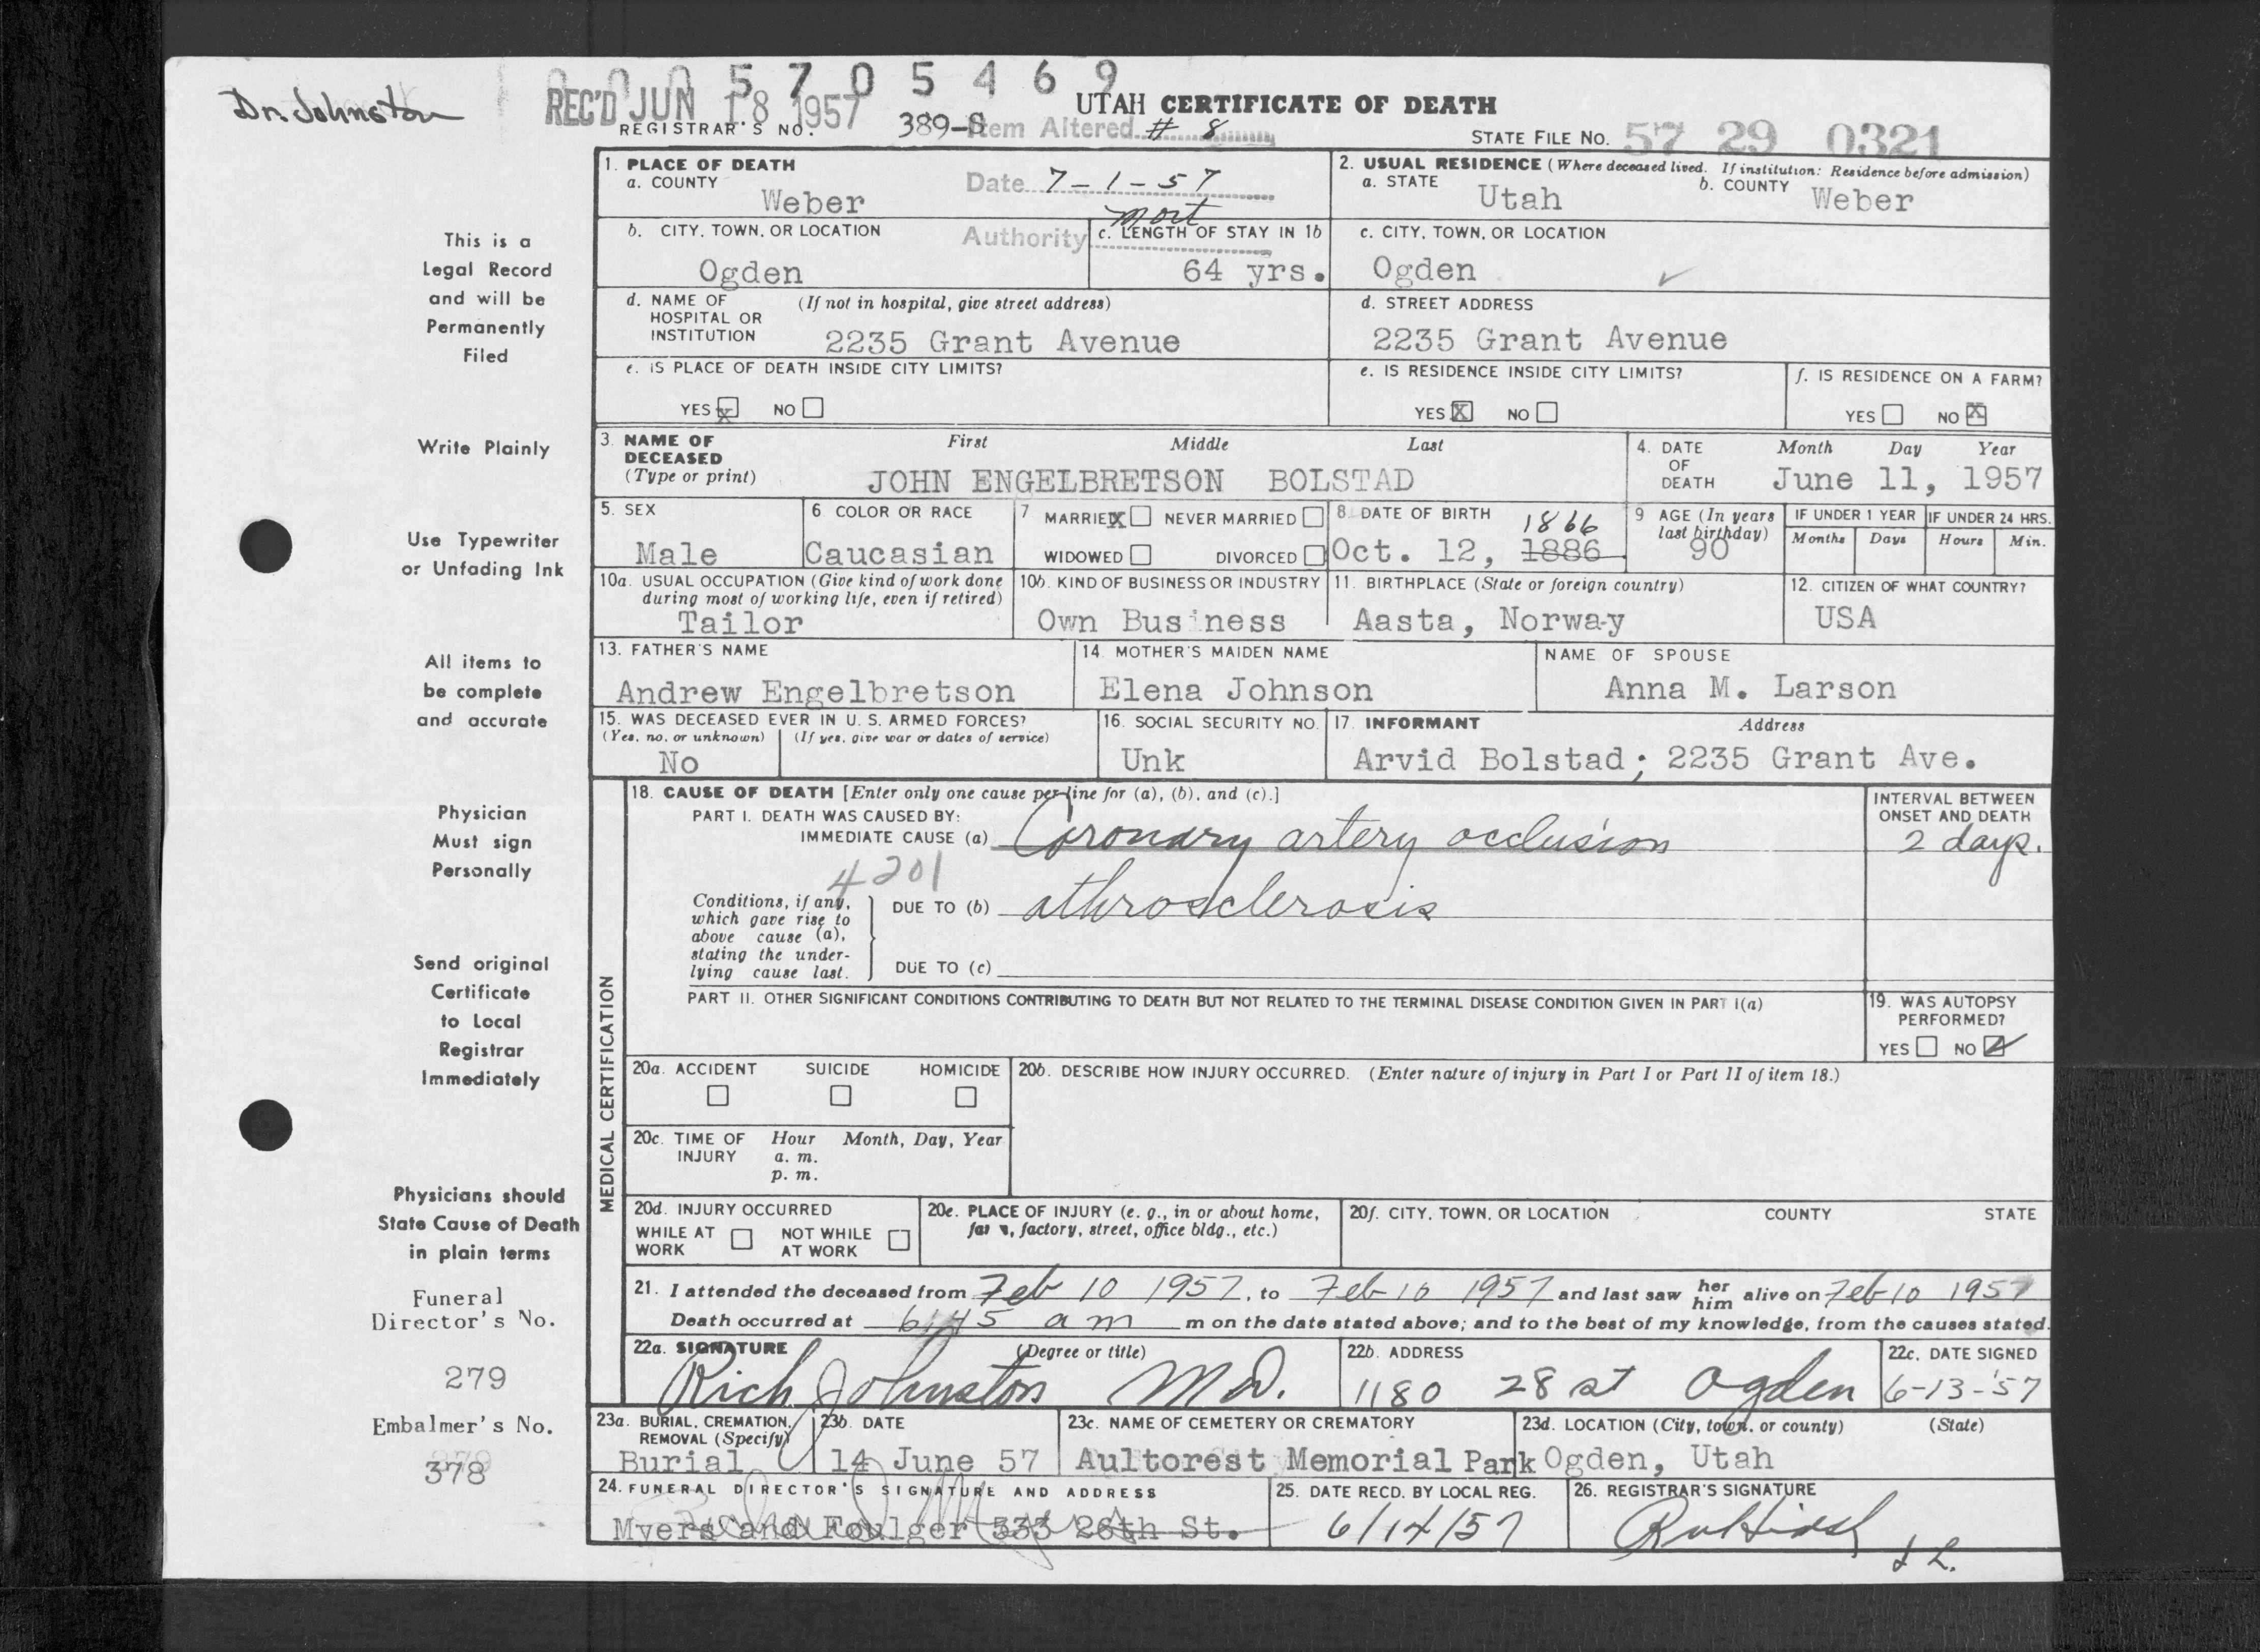 Dr. Johnston
0005705469
REC'D JUN 18 1957
UTAH CERTIFICATE OF DEATH
REGISTRAR'S NO. 389-S
Item Altered # 8
STATE FILE NO. 57 29 0321
Date 7-1-57
Authority mort
1. PLACE OF DEATH
a. COUNTY
Weber
2. USUAL RESIDENCE (Where deceased lived. If institution: Residence before admission)
a. STATE Utah
b. COUNTY Weber
b. CITY, TOWN, OR LOCATION
Ogden
c. LENGTH OF STAY IN 1b
64 yrs.
c. CITY, TOWN, OR LOCATION
Ogden
d. NAME OF HOSPITAL OR INSTITUTION (If not in hospital, give street address)
2235 Grant Avenue
d. STREET ADDRESS
2235 Grant Avenue
e. IS PLACE OF DEATH INSIDE CITY LIMITS?
YES X NO
e. IS RESIDENCE INSIDE CITY LIMITS?
YES X NO
f. IS RESIDENCE ON A FARM?
YES NO X
3. NAME OF DECEASED (Type or print)
First Middle Last
JOHN ENGELBRETSON BOLSTAD
4. DATE OF DEATH
Month Day Year
June 11, 1957
5. SEX
Male
6 COLOR OR RACE
Caucasian
7 MARRIED X NEVER MARRIED
WIDOWED DIVORCED
8. DATE OF BIRTH
1866
Oct. 12, 1886
9 AGE (In years last birthday)
90
IF UNDER 1 YEAR
Months Days
IF UNDER 24 HRS.
Hours Min.
10a. USUAL OCCUPATION (Give kind of work done during most of working life, even if retired)
Tailor
10b. KIND OF BUSINESS OR INDUSTRY
Own Business
11. BIRTHPLACE (State or foreign country)
Aasta, Norway
12. CITIZEN OF WHAT COUNTRY?
USA
13. FATHER'S NAME
Andrew Engelbretson
14. MOTHER'S MAIDEN NAME
Elena Johnson
NAME OF SPOUSE
Anna M. Larson
15. WAS DECEASED EVER IN U. S. ARMED FORCES?
(Yes, no, or unknown) (If yes, give war or dates of service)
No
16. SOCIAL SECURITY NO.
Unk
17. INFORMANT Address
Arvid Bolstad; 2235 Grant Ave.
MEDICAL CERTIFICATION
18. CAUSE OF DEATH [Enter only one cause per line for (a), (b), and (c).]
PART I. DEATH WAS CAUSED BY:
IMMEDIATE CAUSE (a) Coronary artery occlusion
INTERVAL BETWEEN ONSET AND DEATH
2 days.
4201
Conditions, if any, which gave rise to above cause (a), stating the underlying cause last.
DUE TO (b) athrosclerosis
DUE TO (c)
PART II. OTHER SIGNIFICANT CONDITIONS CONTRIBUTING TO DEATH BUT NOT RELATED TO THE TERMINAL DISEASE CONDITION GIVEN IN PART I(a)
19. WAS AUTOPSY PERFORMED?
YES NO
20a. ACCIDENT SUICIDE HOMICIDE
20b. DESCRIBE HOW INJURY OCCURRED. (Enter nature of injury in Part I or Part II of item 18.)
20c. TIME OF INJURY
Hour Month, Day, Year
a. m.
p. m.
20d. INJURY OCCURRED
WHILE AT WORK NOT WHILE AT WORK
20e. PLACE OF INJURY (e. g., in or about home, farm, factory, street, office bldg., etc.)
20f. CITY, TOWN, OR LOCATION COUNTY STATE
21. I attended the deceased from Feb 10 1957, to Feb 10 1957 and last saw her him alive on Feb 10 1957
Death occurred at 6:45 am m on the date stated above; and to the best of my knowledge, from the causes stated.
22a. SIGNATURE (Degree or title)
Rich Johnston M D.
22b. ADDRESS
1180 28 st Ogden
22c. DATE SIGNED
6-13-'57
23a. BURIAL, CREMATION, REMOVAL (Specify)
Burial
23b. DATE
14 June 57
23c. NAME OF CEMETERY OR CREMATORY
Aultorest Memorial Park
23d. LOCATION (City, town, or county) (State)
Ogden, Utah
24. FUNERAL DIRECTOR'S SIGNATURE AND ADDRESS
Myers and Foulger 533 26th St.
25. DATE RECD. BY LOCAL REG.
6/14/57
26. REGISTRAR'S SIGNATURE
This is a
Legal Record
and will be
Permanently
Filed
Write Plainly
Use Typewriter
or Unfading Ink
All items to
be complete
and accurate
Physician
Must sign
Personally
Send original
Certificate
to Local
Registrar
Immediately
Physicians should
State Cause of Death
in plain terms
Funeral
Director's No.
279
Embalmer's No.
378